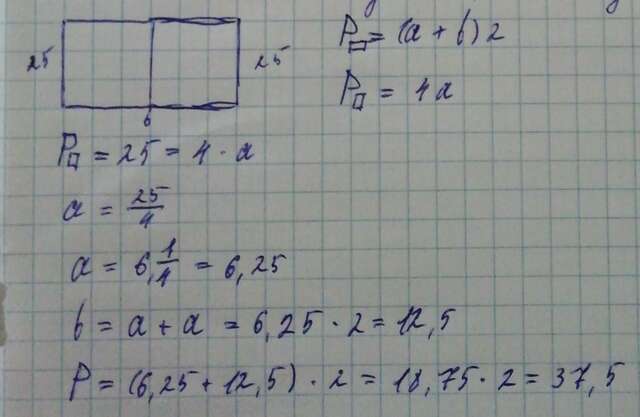 P▭ = (a + b) 2
25 25
P□ = 4a
b
P□ = 25 = 4 · a
a = 25/4
a = 6,1/4 = 6,25
b = a + a = 6,25 · 2 = 12,5
P = (6,25 + 12,5) · 2 = 18,75 · 2 = 37,5